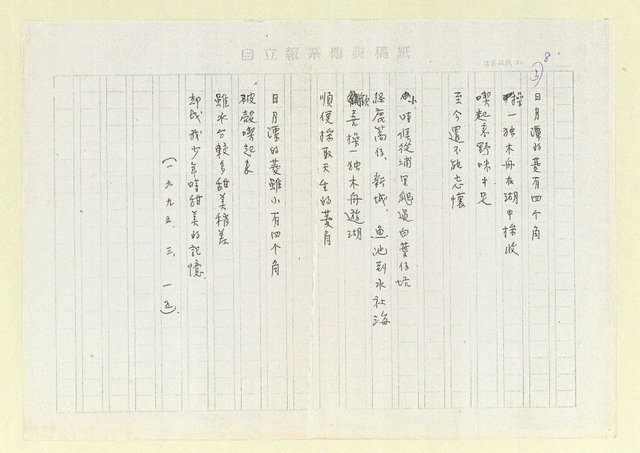 自立報系傳真稿紙
8
3
日月潭的菱有四个角
操一独木舟在湖中採收
喫起來野味十足
至今還不能忘懷
小時候從埔里翻過白葉仔坑
経鹿蒿仔、新城、魚池到水社海
歡喜操一独木舟遊湖
順便採取天生的菱角
日月潭的菱雖小有四个角
破殼喫起來
雖水分較多甜美稍差
却成我少年時甜美的記憶
(一九九五.三.一五)